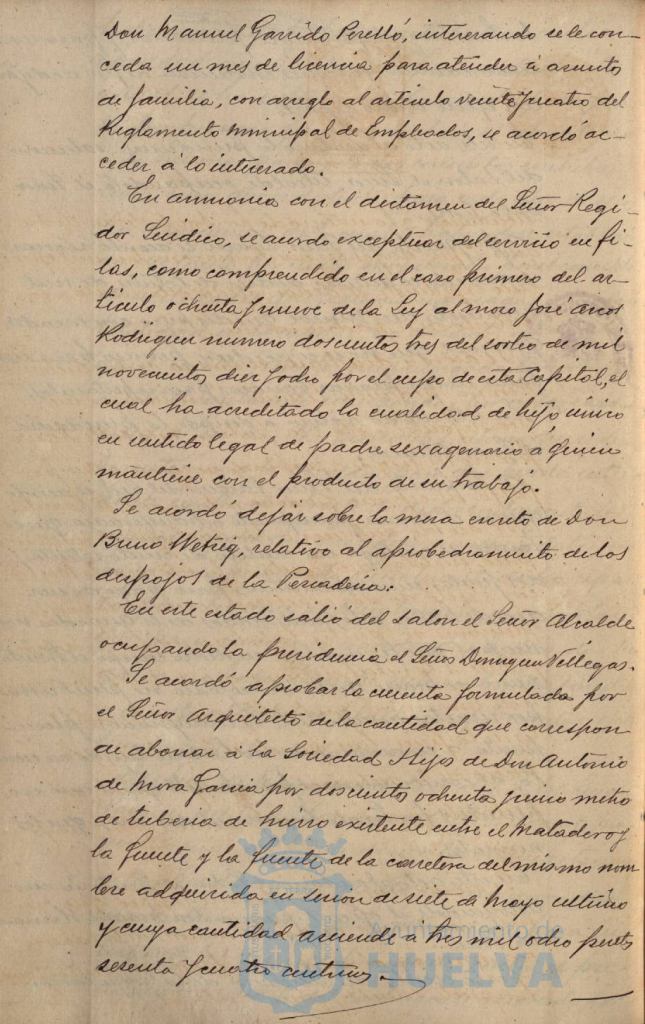 Don Manuel Garrido Perelló, interesando se le con-
ceda un mes de licencia para atender á asuntos
de familia, con arreglo al articulo veinte y cuatro del
Reglamento Municipal de Empleados, se acordó ac-
ceder á lo interesado.
En armonia con el dictamen del Señor Regi-
dor Sindico, se acordo exceptuar del servicio en fi-
las, como comprendido en el caso primero del ar-
ticulo ochenta y nueve de la Ley al mozo José Arcos
Rodriguez numero doscientos tres del sorteo de mil
novecientos diez y ocho por el cupo de esta Capital, el
cual ha acreditado la cualidad de hijo único
en sentido legal de padre sexagenario á quien
mantiene con el producto de su trabajo.
Se acordó dejar sobre la mesa escrito de Don
Bruno Wetzig, relativo al aprovechamiento de los
despojos de la Pescaderia.
En este estado salió del salon el Señor Alcalde
ocupando la presidencia el Señor Dominguez Villegas.
Se acordó aprobar la cuenta formulada por
el Señor Arquitecto de la cantidad que correspon
de abonar á la Sociedad Hijos de Don Antonio
de Mora Garcia por doscientos ochenta y cinco metros
de tuberia de hierro existente entre el Matadero y
la fuente y la fuente de la carretera del mismo nom
bre adquirida en sesion de siete de Mayo ultimo
y cuya cantidad asciende á tres mil ocho pesetas
sesenta y cuatro centimos.
Ayuntamiento de
HUELVA